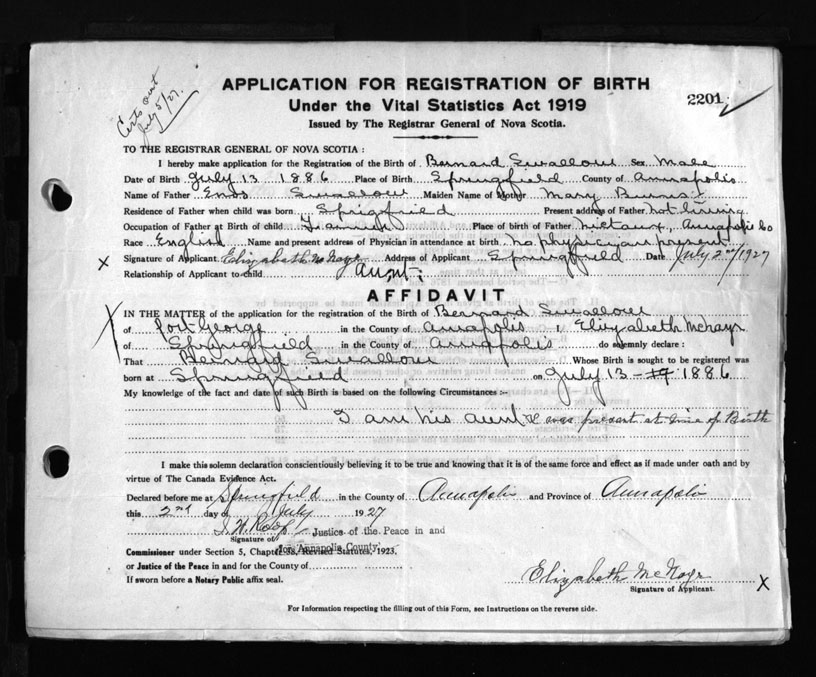 Certs sent
July 5/27.
APPLICATION FOR REGISTRATION OF BIRTH
Under the Vital Statistics Act 1919
2201
Issued by The Registrar General of Nova Scotia.
TO THE REGISTRAR GENERAL OF NOVA SCOTIA :
I hereby make application for the Registration of the Birth of Bernard Swallow Sex Male
Date of Birth July 13 1886 Place of Birth Springfield County of Annapolis
Name of Father Enos Swallow Maiden Name of Mother Mary
Residence of Father when child was born Sprigfield Present address of Father not living
Occupation of Father at Birth of child Place of Birth of Father Nictaux, Annapolis Co
Race English Name and present address of Physician in attendance at birth no physician present
Signature of Applicant Elizabeth McNayr Address of Applicant Springfield Date July 2nd/1927
X Relationship of Applicant to child Aunt.
AFFIDAVIT
X IN THE MATTER of the application for the registration of the Birth of Bernard Swallow
of Port George in the County of Annapolis I, Elizabeth McNayr
of Springfield in the County of Annapolis do solemnly declare :
That Bernard Swallow Whose Birth is sought to be registered was
born at Springfield on July 13 - 1886
My knowledge of the fact and date of such Birth is based on the following Circumstances :-
I am his aunt & was present at time of Birth
I make this solemn declaration conscientiously believing it to be true and knowing that it is of the same force and effect as if made under oath and by
virtue of The Canada Evidence Act.
Declared before me at Springfield in the County of Annapolis and Province of Annapolis
this 2nd day of July 1927
Justice of the Peace in and
Signature of
for Annapolis County.
Commissioner under Section 5, Chapter 38, Revised Statutes, 1923.
or Justice of the Peace in and for the County of
If sworn before a Notary Public affix seal.
Elizabeth McNayr X
Signature of Applicant.
For Information respecting the filling out of this Form, see Instructions on the reverse side.